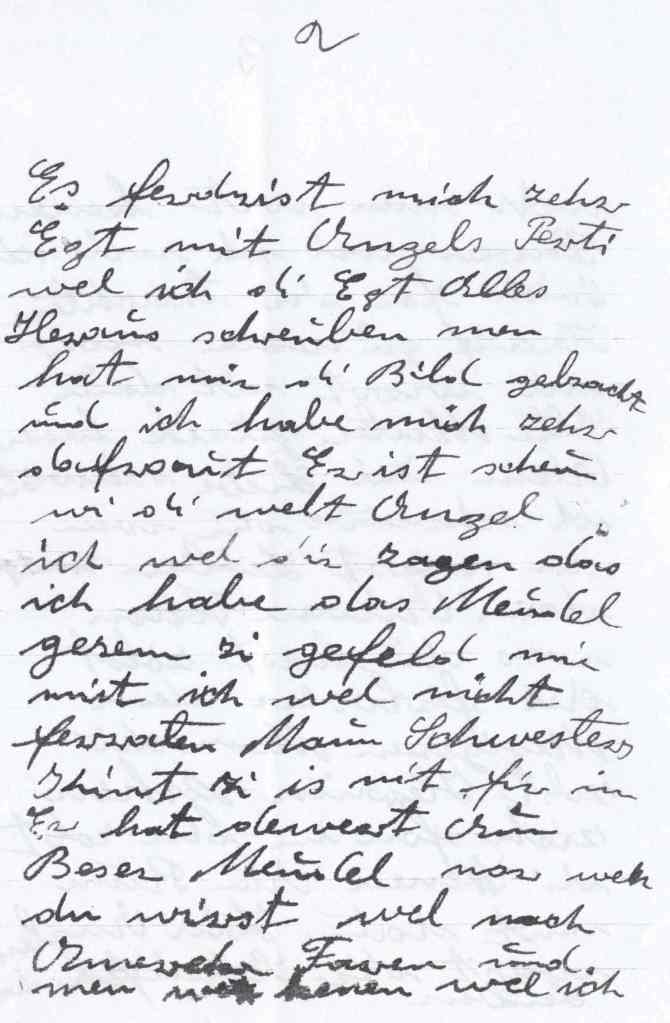 2
Es ferdrist mich zehr
Egt mit Anzels Perti
wel ich di Egt Alles
Heraus schreuben men
hat mir di Bild gebracht
und ich habe mich zehr
dafraut Er ist schen
wi di welt Anzel
ich wel dir zagen das
ich habe das Meudel
geren zi gefeld mir
mist ich wel nicht
ferraten Main Schwesters
Khint zi is nit fir im
Er hat derwert Ain
Beser Meudel nor weh
du wirst wel nach
Amerka Faren und
men kenen wel ich